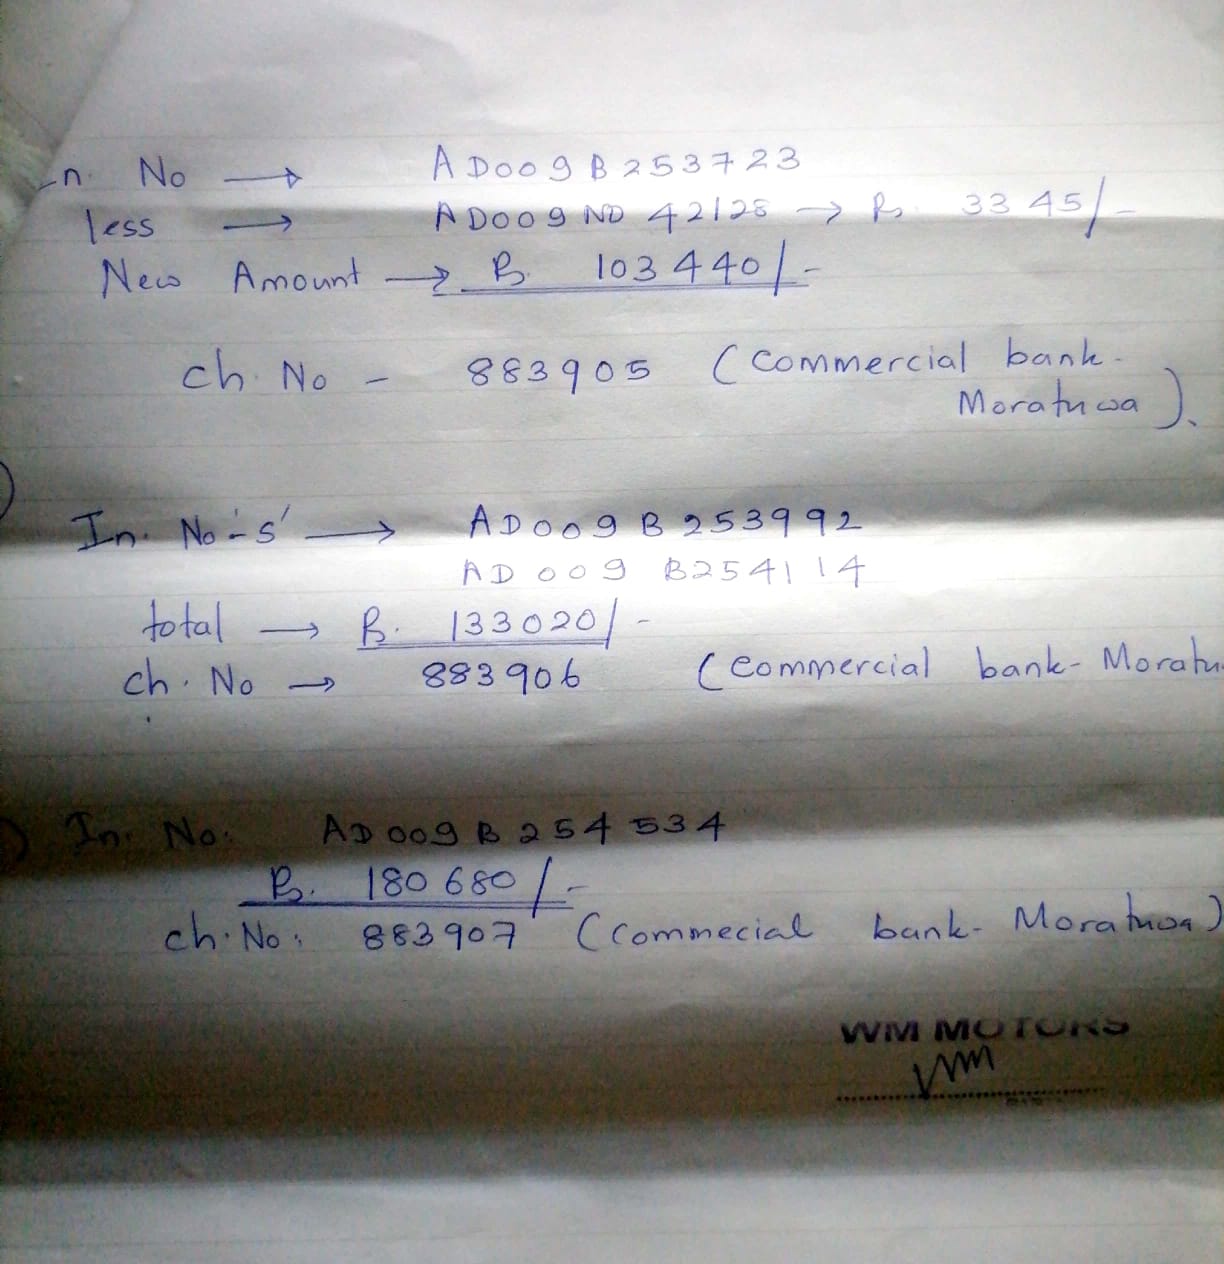 In. No → AD009B253723
less → AD009ND 42128 → Rs. 3345/-
New Amount → Rs. 103440/-
ch. No - 883905 (Commercial bank-
Moratuwa).
In. No-s' → AD009B253992
AD009 B254114
total → Rs. 133020/-
ch. No → 883906 (Commercial bank- Moratu
In. No: AD009B254534
Rs. 180680/-
ch. No: 883907 (Commecial bank- Moratuwa)
WM MOTORS